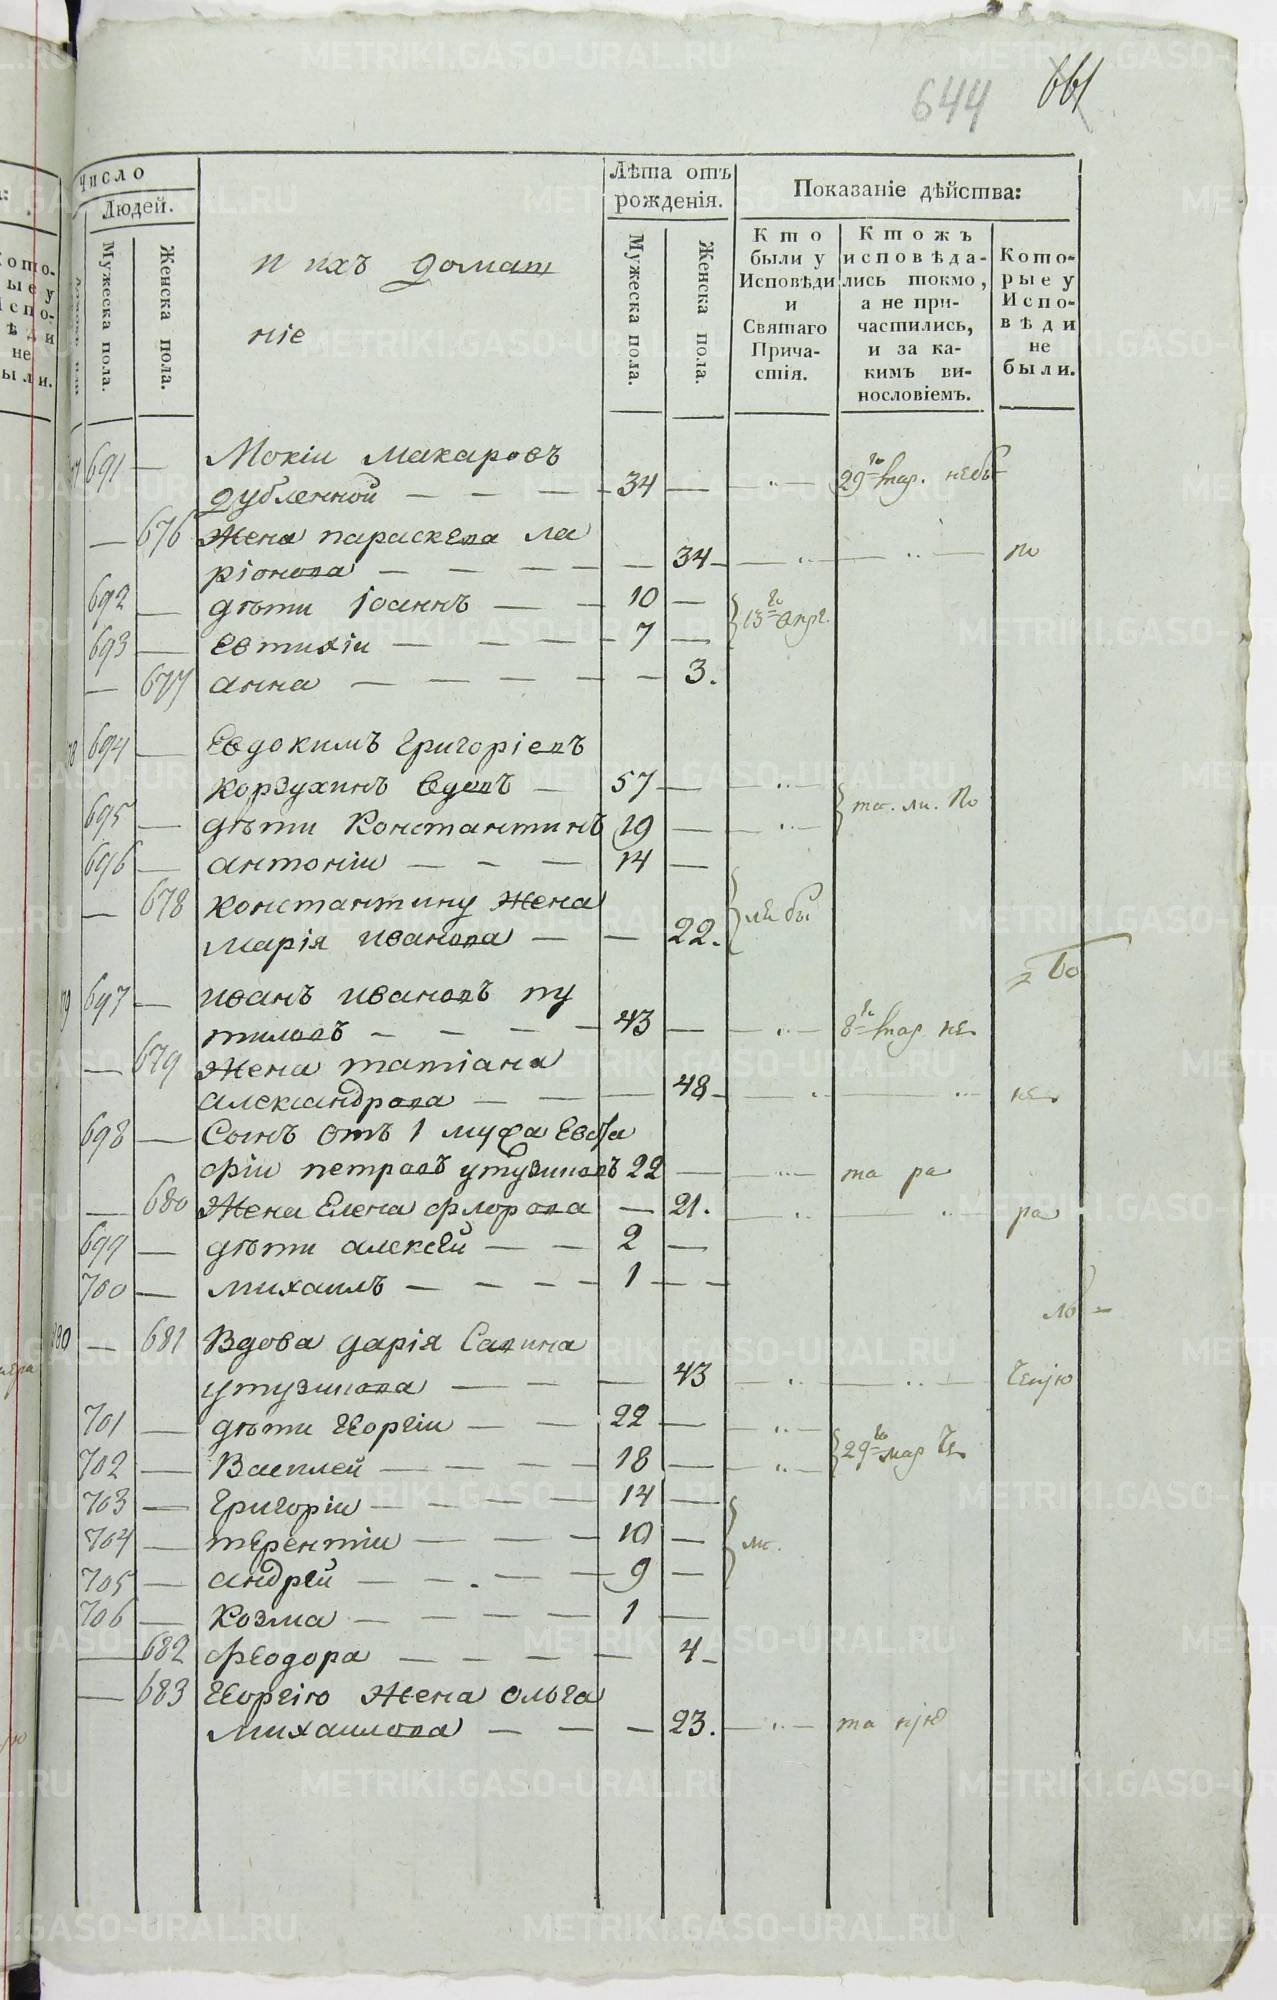 644 661
Число
Людей.
Мужеска пола.
Женска пола.
и ихъ домаш
ніе
Лѣта отъ
рожденія.
Мужеска пола.
Женска пола.
Показаніе дѣйства:
Кто
были у
Исповѣди
и
Святаго
Прича-
стія.
Ктожъ
исповѣда-
лись токмо,
а не при-
частились,
и за ка-
кимъ ви-
нословіемъ.
Кото-
рые у
Испо-
вѣди
не
были.
691 — Мокіи Макаровъ
дубленной — — — — 34 — — 29 мар. небы
— 676 Жена параскева ла
ріонова — — — — — 34 — — — по
692 — дѣти Іоаннъ — — 10 —
13 апр.
693 — Евтихіи — — — — 7 —
— 677 анна — — — — — 3.
694 — Евдокимъ Григоріевъ
Корзухинъ вдовъ — 57 — —
та. ли. по
695 — дѣти Константинъ 19 — —
696 — антоніи — — — 14 —
— 678 константину Жена
ли бы
марія иванова — — 22.
697 — иванъ ивановъ пу
тиловъ — — — — 43 — — 8 мар не
— 679 Жена татіана
александрова — — — 48 — — — не
698 — Сынъ отъ 1 мужа Евста
фіи петровъ утузиковъ 22 — — та ра
— 680 Жена Елена флорова — 21. — — ра
699 — дѣти алексѣй — — 2 —
700 — михаилъ — — — — 1 — —
681 Вдова дарія Савина
утузикова — — — 43 — — —
701 — дѣти Георгіи — — 22 — —
29 мар
702 — Василей — — — — 18 — —
703 — Григоріи — — — — 14 —
704 — терентіи — — — 10 —
705 — андрей — — — — 9 —
706 — Козма — — — — 1 —
— 682 феодора — — — — — 4 —
— 683 Георгію Жена ольга
михаилова — — — 23. — — та